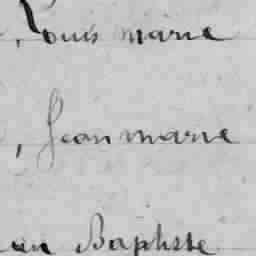 , Louis marie
, Jean marie
an Baptiste